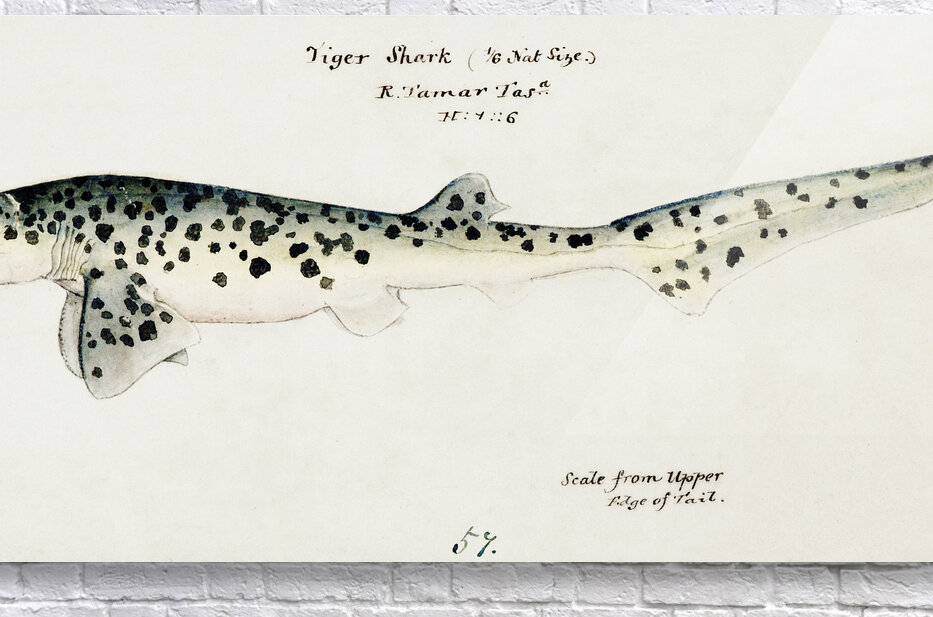 Tiger Shark (1/6 Nat Size.)
R. Tamar Tasª
Scale from Upper
Edge of Tail.
57.